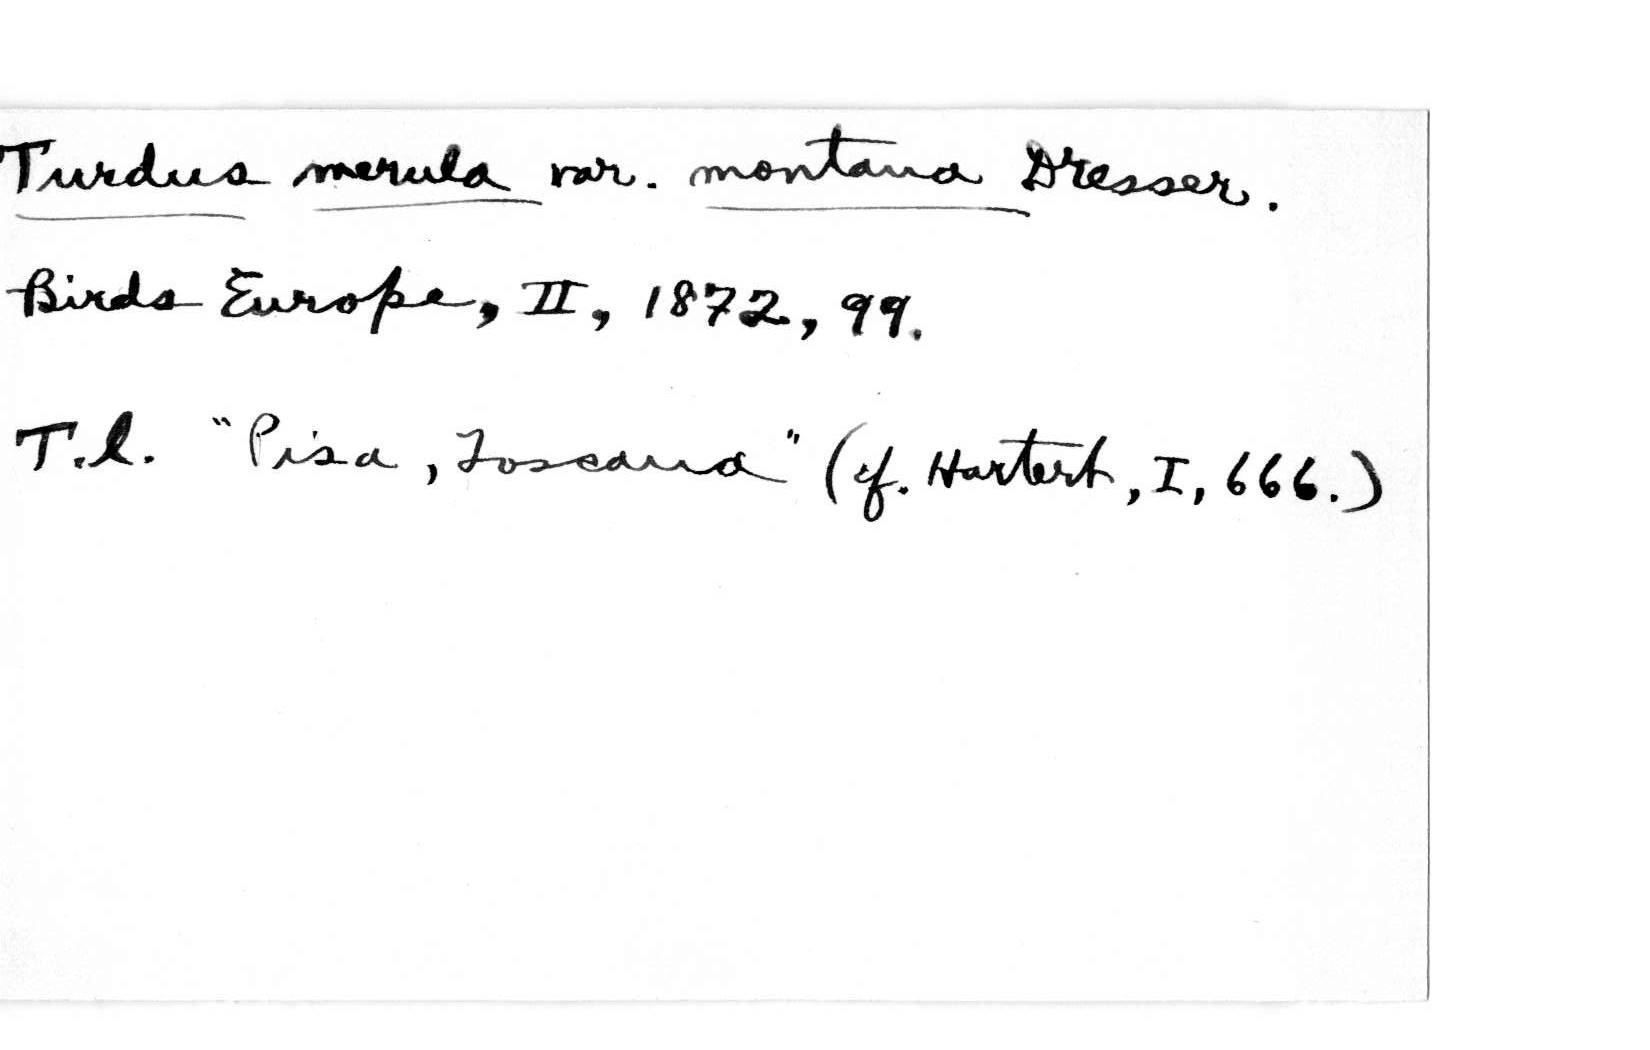 Turdus merula var. montana Dresser.
Birds Europe, II, 1872, 99.
T.l. "Pisa, Toscana" (cf. Hartert, I, 666.)